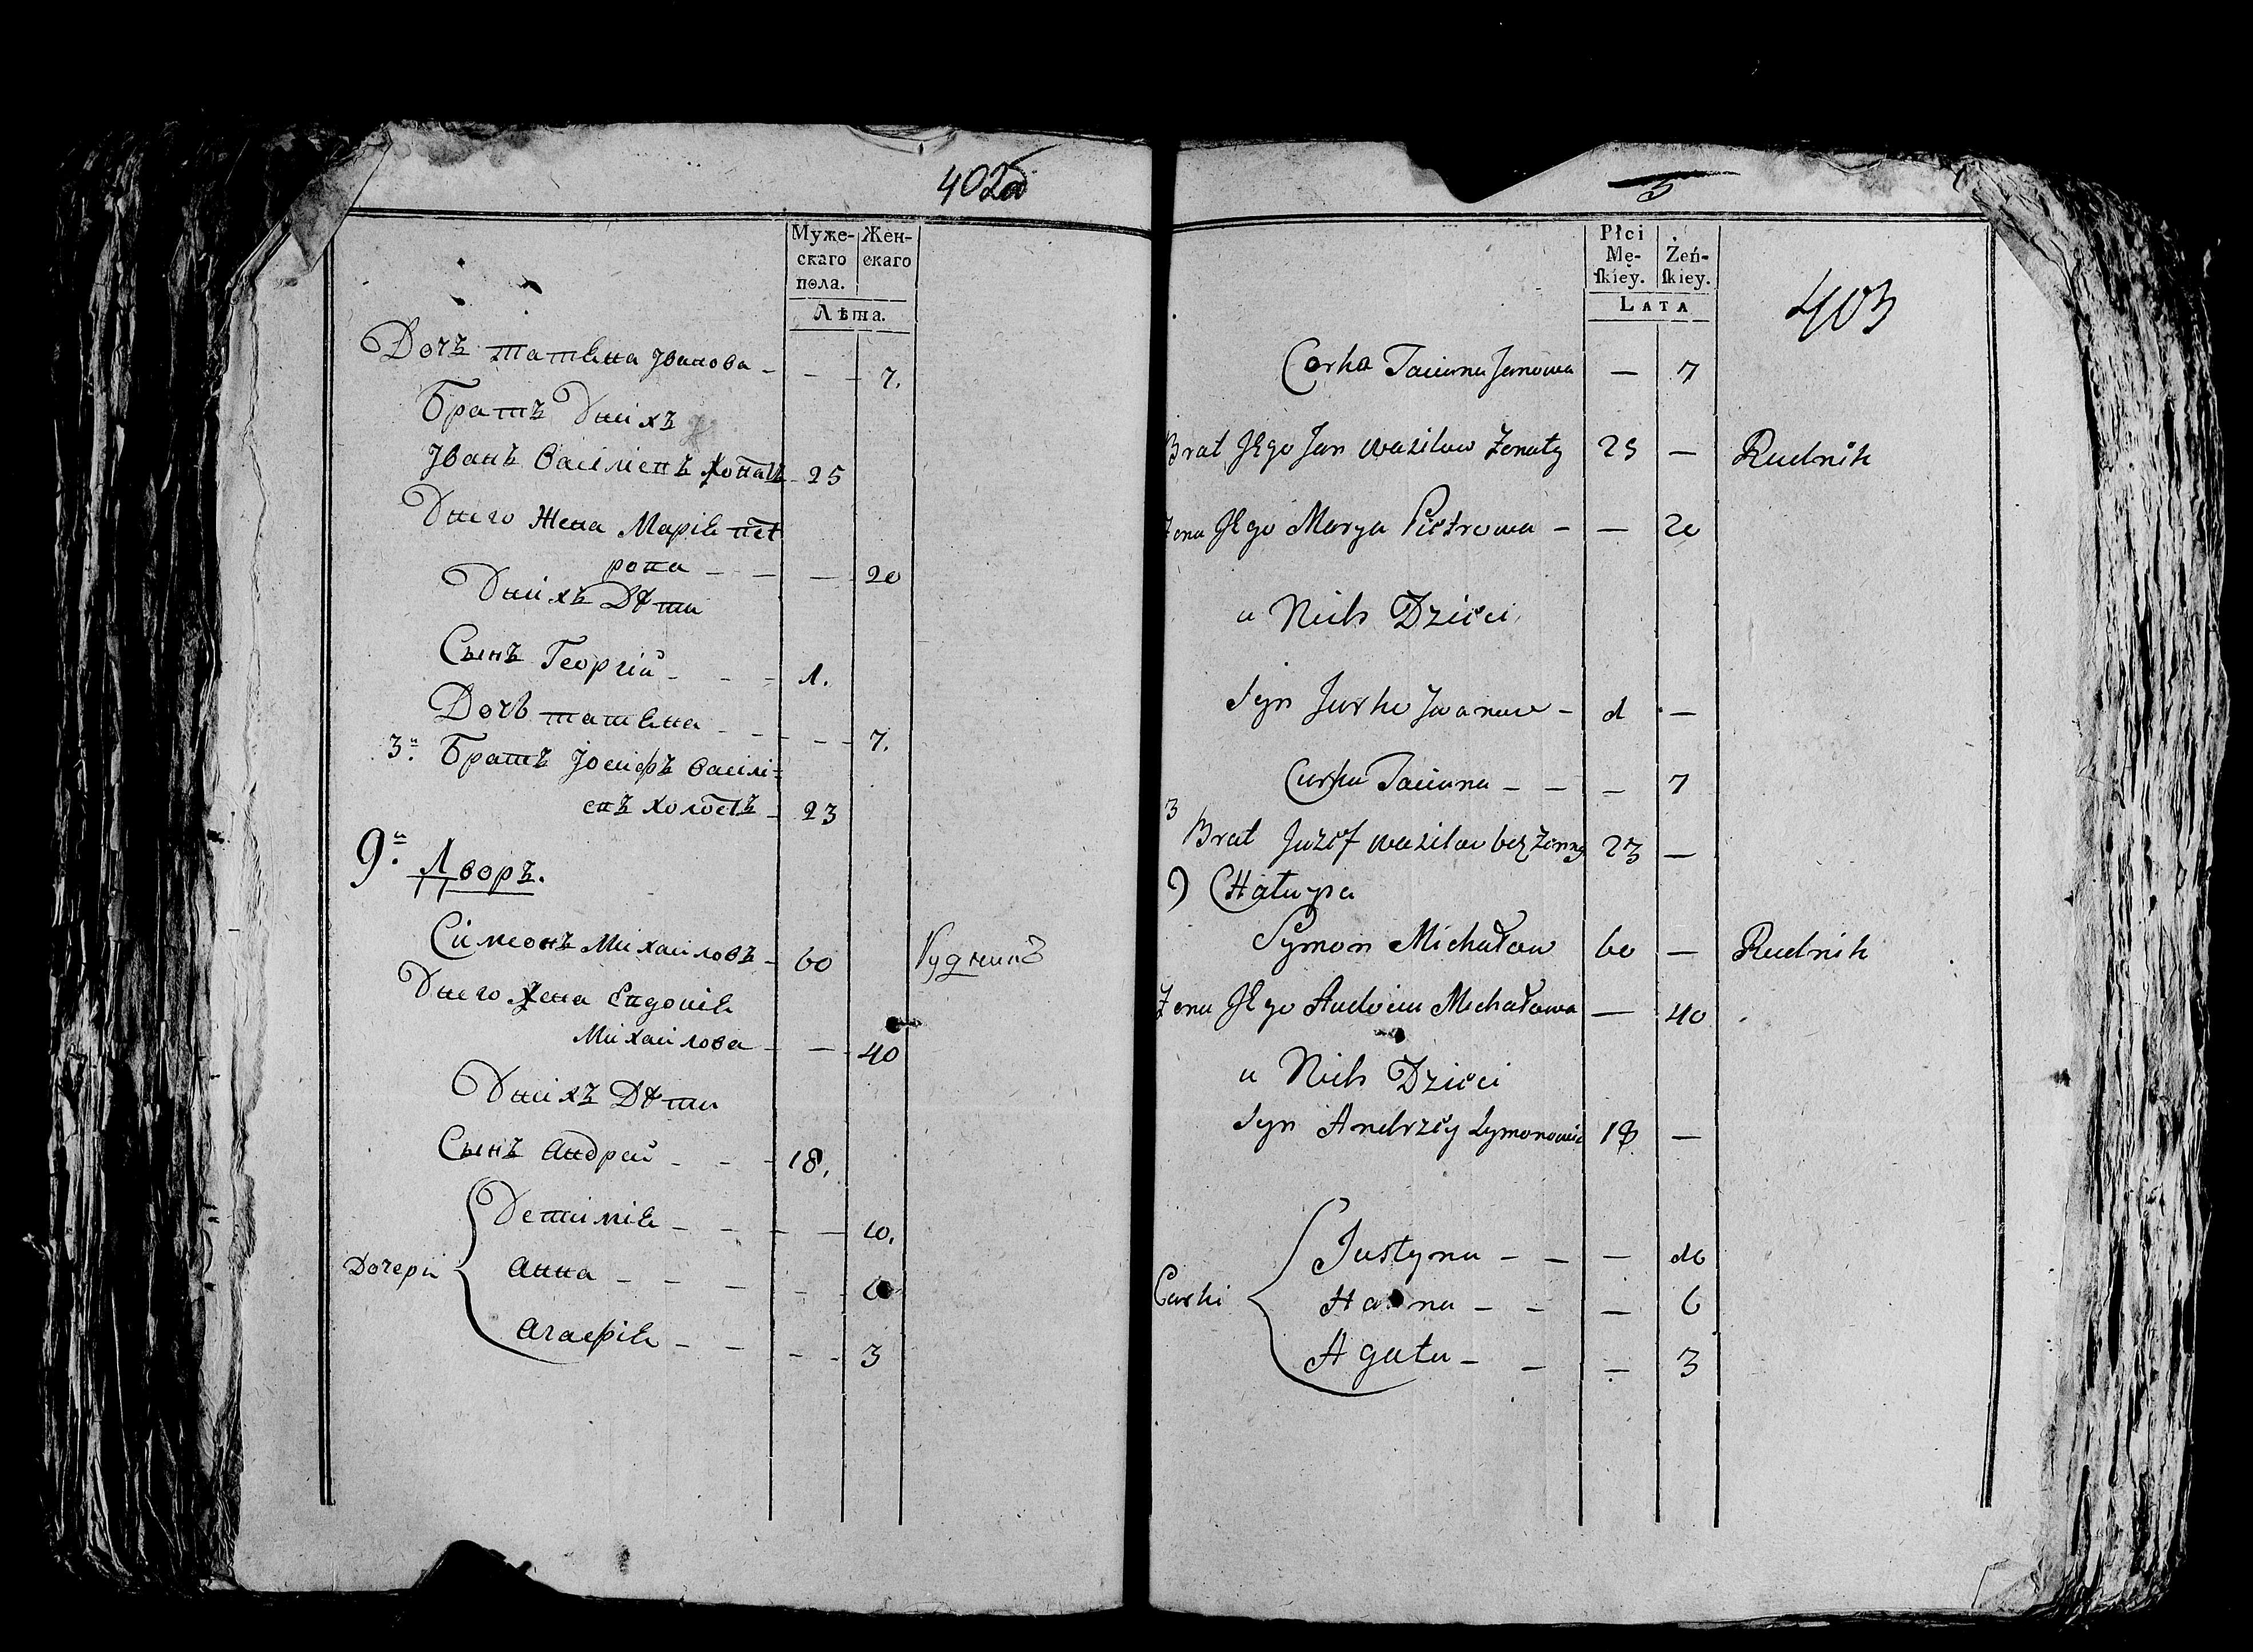 402об
Муже-
скаго
пола.
Жен-
скаго
Лѣта.
Дочъ татѣна Јванова - - - 7.
Братъ Ѹнихъ
Јванъ Василіевъ жонатъ - 25
Ѹнего Жена Маріѣ пет
рова - - - 20
Ѹнихъ Дѣти
Сынъ Георгій - - - 1.
Дочь татѣна - - - - 7.
3й Братъ Јосифъ Васил=
евъ холостъ - 23
9й Дворъ.
Симеонъ Михаиловъ - 60 Рудникъ
Ѹнего жена Евдокіѣ
Михаилова - - - 40
Ѹнихъ Дѣти
Сынъ Андрей - - - 18.
Дочери
- - - - 10.
Анна - - - - - 6
Агафіѣ - - - - 3
Płci
Mę-
ſkiey.
Żeń-
ſkiey.
LATA
403
Corka Taciana Janowa — 7
Brat Jego Jan Wazilow Zonaty 25 — Rudnik
Zona Jego Marya Piotrowa - — 20
u Nich Dzieci
Syn Jurko Iwanow - 1 —
Curka Taciana - - - 7
3
Brat Juzef Wazilow bez Zonny 23 —
9 CHałupa
Symon Michałow 60 — Rudnik
Zona Jego Audocia Michałowa — 40
u Nich Dzieci
Syn Andrzey Symonowic 18 —
Curki
Justyna - - — 10
Hanna - - — 6
Agata - - — 3